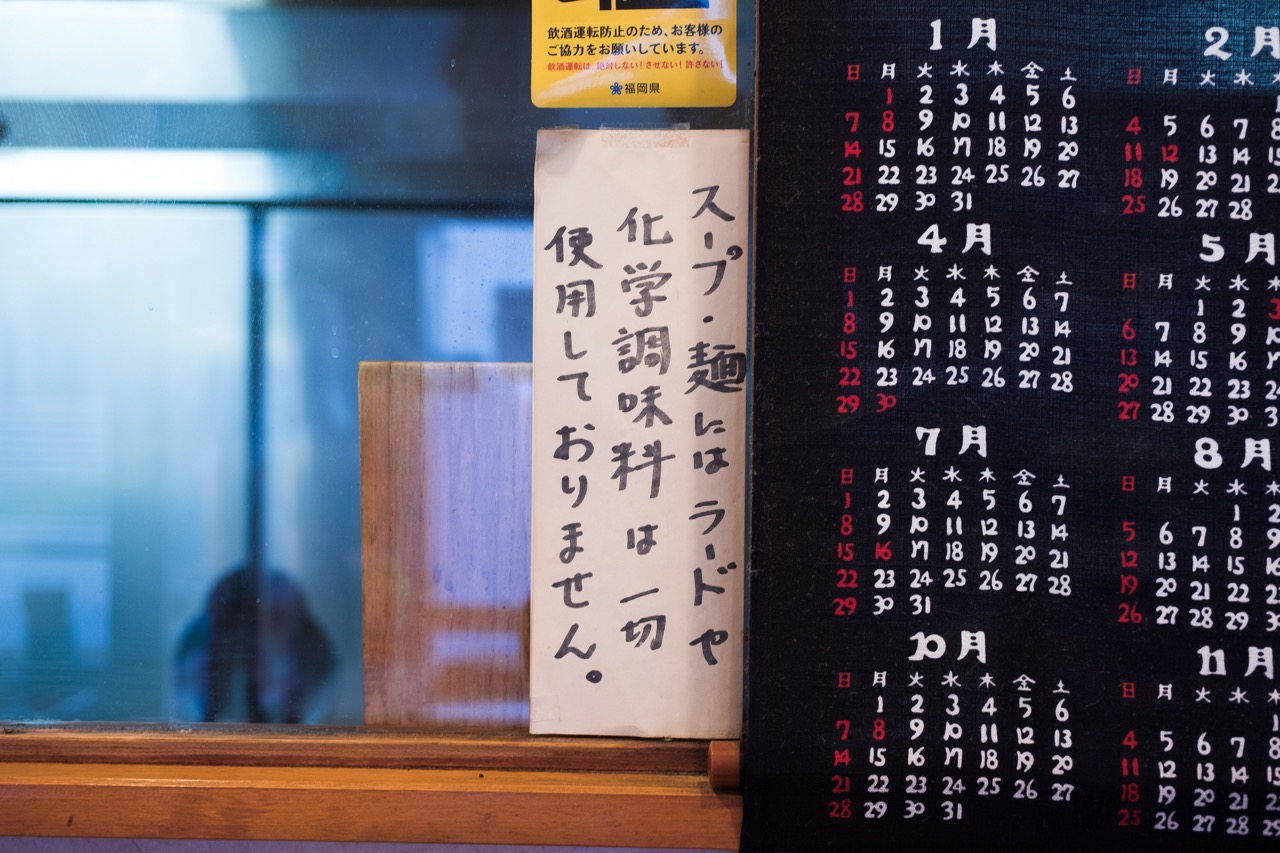 飲酒運転防止のため、お客様の
ご協力をお願いしています。
飲酒運転は、絶対しない！させない！許さない！
福岡県
スープ・麺にはラードや
化学調味料は一切
使用しておりません。
1月
日 月 火 水 木 金 土
1 2 3 4 5 6
7 8 9 10 11 12 13
14 15 16 17 18 19 20
21 22 23 24 25 26 27
28 29 30 31
2月
日 月 火 水
4 5 6 7 8
11 12 13 14 15
18 19 20 21
25 26 27 28
4月
日 月 火 水 木 金 土
1 2 3 4 5 6 7
8 9 10 11 12 13 14
15 16 17 18 19 20 21
22 23 24 25 26 27 28
29 30
5月
日 月 火 水 木
1 2 3
6 7 8 9 10
13 14 15 16
20 21 22 23
27 28 29 30
7月
日 月 火 水 木 金 土
1 2 3 4 5 6 7
8 9 10 11 12 13 14
15 16 17 18 19 20 21
22 23 24 25 26 27 28
29 30 31
8月
日 月 火 水 木
1 2
5 6 7 8 9
12 13 14 15
19 20 21 22
26 27 28 29
10月
日 月 火 水 木 金 土
1 2 3 4 5 6
7 8 9 10 11 12 13
14 15 16 17 18 19 20
21 22 23 24 25 26 27
28 29 30 31
11月
日 月 火 水
4 5 6 7 8
11 12 13 14 15
18 19 20 21
25 26 27 28